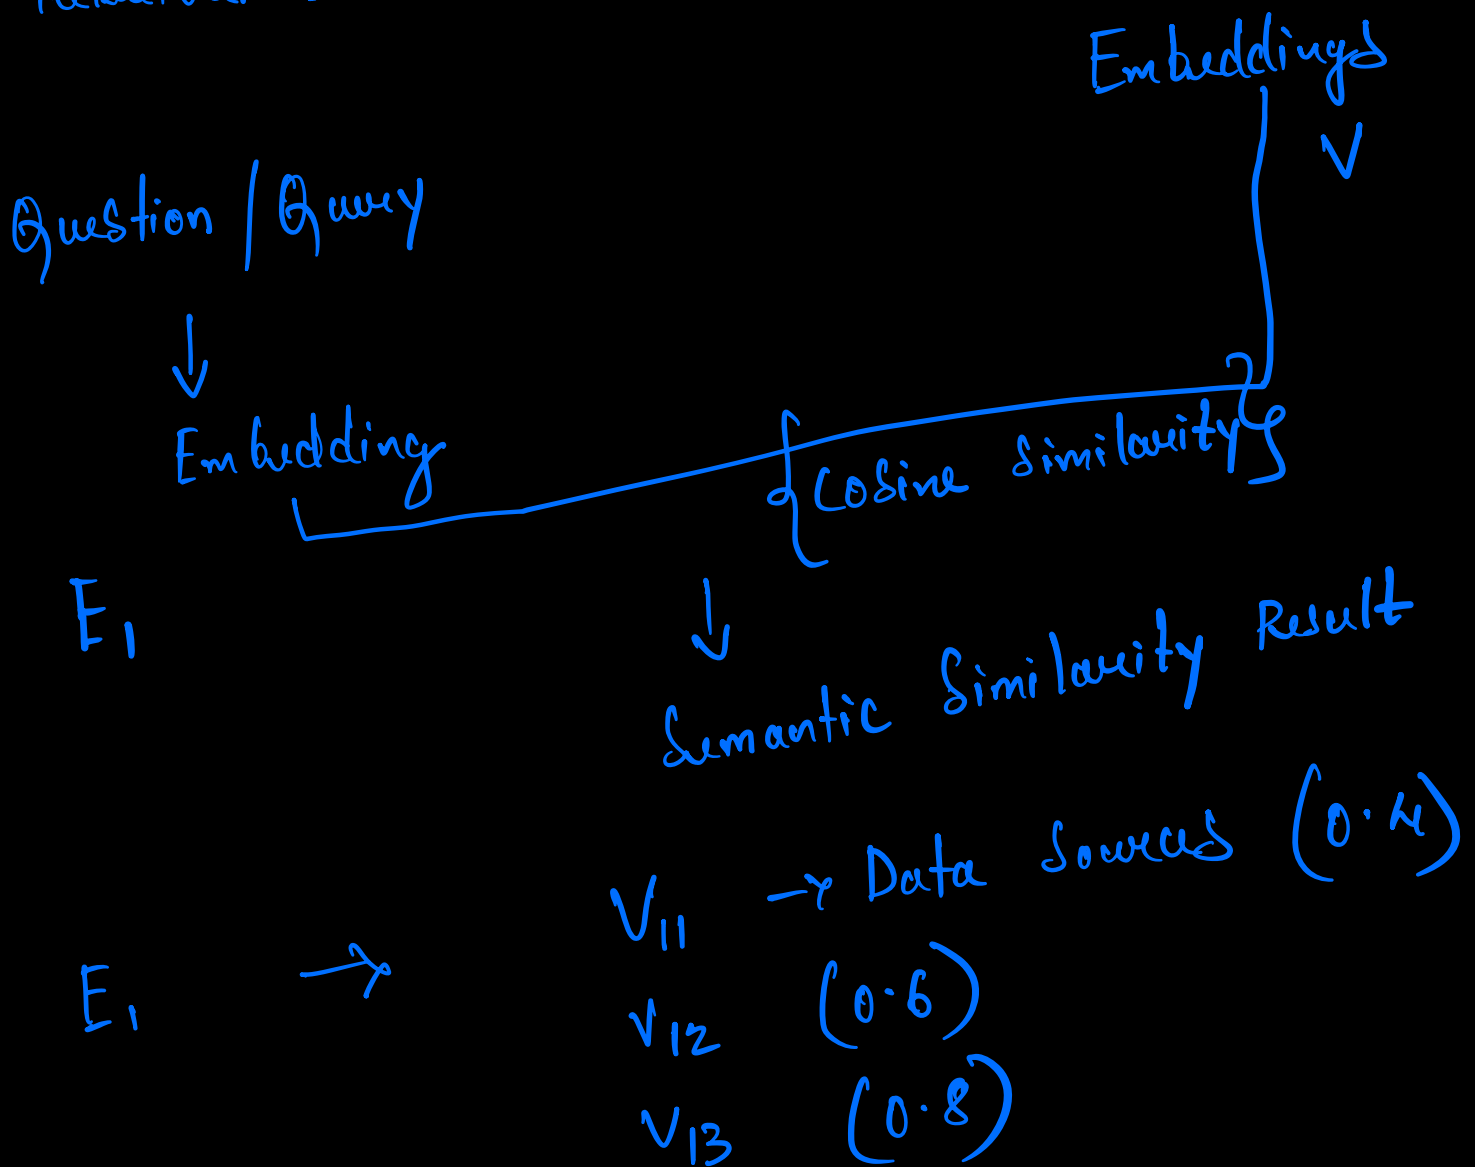 Embeddings
V
Question / Query
↓
Embedding
{ Cosine Similarity }
E1
↓
Semantic Similarity Result
V11 → Data Sources (0.4)
E1 →
V12 (0.6)
V13 (0.8)